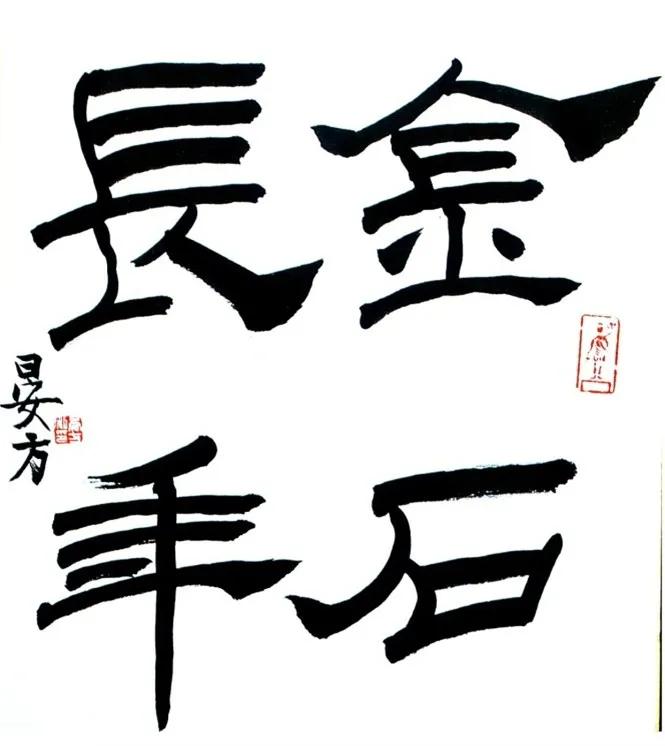 金石
長年
晏方